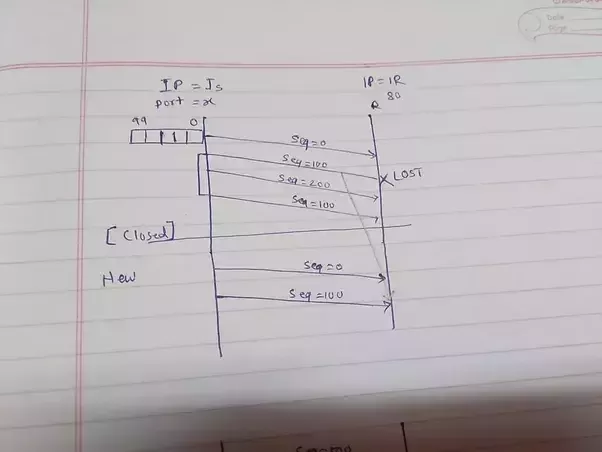 Date
IP = Is
port = x
IP = IR
R 80
99 0
Seq=0
Seq=100
LOST
Seq=200
Seq=100
[Closed]
New
Seq=0
Seq=100